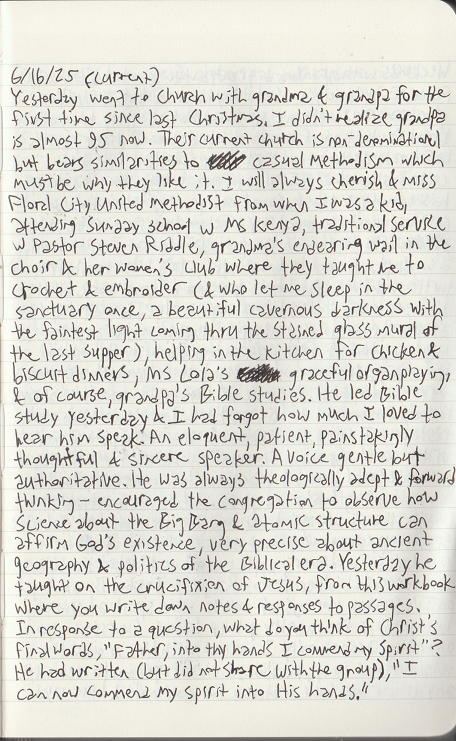 6/16/25 (current)
Yesterday went to church with grandma & grandpa for the
first time since last Christmas. I didn't realize grandpa
is almost 95 now. Their current church is non-denominational
but bears similarities to casual Methodism which
must be why they like it. I will always cherish & miss
Floral City United Methodist from when I was a kid,
attending Sunday school w Ms Kenya, traditional service
w Pastor Steven Riddle, grandma's endearing wail in the
choir & her women's club where they taught me to
crochet & embroider (& who let me sleep in the
sanctuary once, a beautiful cavernous darkness with
the faintest light coming thru the stained glass mural of
the last supper), helping in the kitchen for chicken &
biscuit dinners, Ms Lola's graceful organ playing,
& of course, grandpa's Bible studies. He led Bible
study yesterday & I had forgot how much I loved to
hear him speak. An eloquent, patient, painstakingly
thoughtful & sincere speaker. A voice gentle but
authoritative. He was always theologically adept & forward
thinking – encouraged the congregation to observe how
science about the Big Bang & atomic structure can
affirm God's existence, very precise about ancient
geography & politics of the Biblical era. Yesterday he
taught on the crucifixion of Jesus, from this workbook
where you write down notes & responses to passages.
In response to a question, what do you think of Christ's
final words, "Father, into thy hands I commend my spirit"?
He had written (but did not share with the group), "I
can now commend my spirit into His hands."